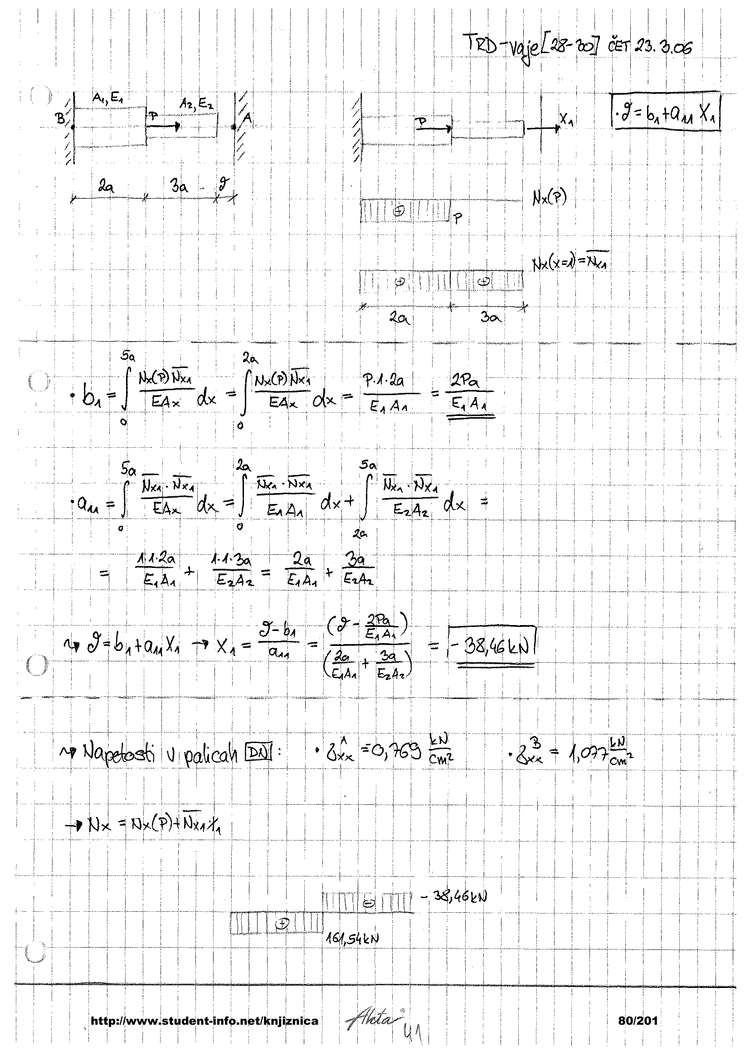 TRD-vaje [28-30] ČET 23.3.06
A₁, E₁ A₂, E₂
B P A
2a 3a ϑ
P X₁
• ϑ = b₁ + a₁₁ X₁
Nx(P)
⊕ P
Nx(x=1) = N̅x₁
⊕ ⊕
2a 3a
• b₁ = ∫₀^5a Nx(P) N̅x₁ / EAx dx = ∫₀^2a Nx(P) N̅x₁ / EAx dx = P·1·2a / E₁A₁ = 2Pa / E₁A₁
• a₁₁ = ∫₀^5a N̅x₁·N̅x₁ / EAx dx = ∫₀^2a N̅x₁·N̅x₁ / E₁A₁ dx + ∫2a^5a N̅x₁·N̅x₁ / E₂A₂ dx =
= 1·1·2a / E₁A₁ + 1·1·3a / E₂A₂ = 2a / E₁A₁ + 3a / E₂A₂
↝ ϑ = b₁ + a₁₁X₁ → X₁ = ϑ-b₁ / a₁₁ = (ϑ - 2Pa/E₁A₁) / (2a/E₁A₁ + 3a/E₂A₂) = -38,46kN
↝ Napetosti v palicah DN : • σxx^A = 0,769 kN/cm² • σxx^B = 1,077 kN/cm²
→ Nx = Nx(P) + N̅x₁·X₁
⊖ - 38,46kN
⊕ 161,54kN
http://www.student-info.net/knjiznica
41
80/201